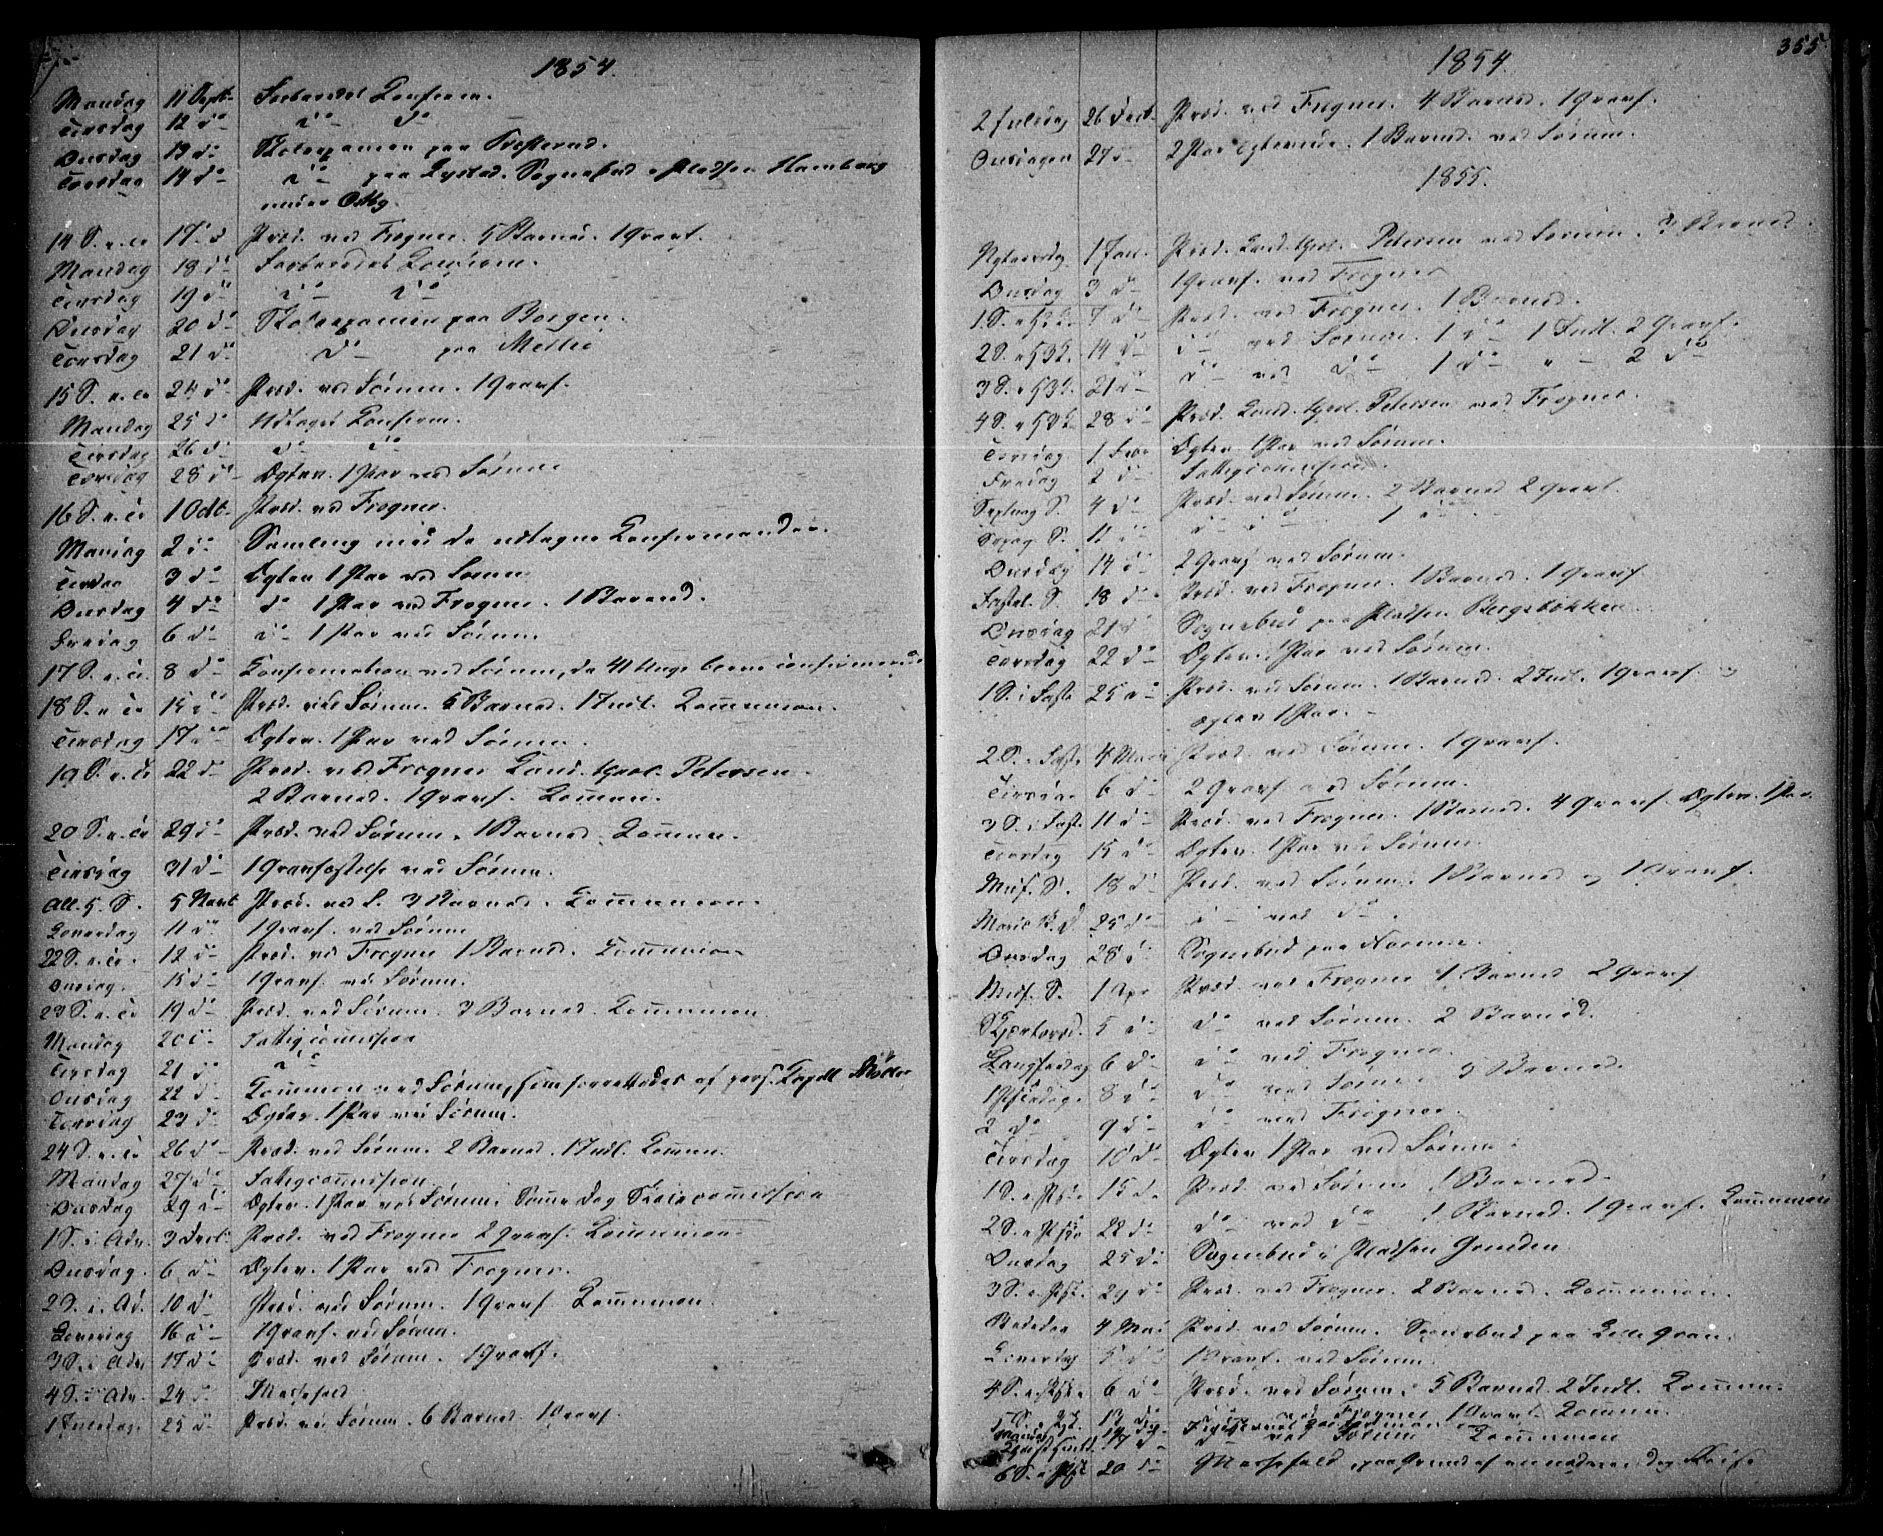 1854.
Mandag 11 Septb. Forberedet Confirm.
Tirsdag 12 do do do
Onsdag 13 do Skoleexamen paa
Torsdag 14 do do paa Sognebud Pladsen Hamborg
under Østby.
14 S. e. Tr 17 d Præd. ved Frogner. 5 Barned. 1 Gravf.
Mandag 18 do Forberedet Confirm.
Tirsdag 19 do do do
Onsdag 20 do Skoleexamen paa Borgen.
Torsdag 21 do do paa Mellie
15 S. e. Tr 24 do Præd. ved Sørum. 1 Gravf.
Mandag 25 do Udtaget Confirm.
Tirsdag 26 do do do
Torsdag 28 do Ægtev. 1 Par ved Sørum
16 S. e. Tr 1 Octb. Præd. ved Frogner.
Mandag 2 do Samling med de udtagne Confirmander.
Tirsdag 3 do Ægtev. 1 Par ved Sørum
Onsdag 4 do do 1 Par ved Frogner. 1 Barned.
Fredag 6 do do 1 Par ved Sørum.
17 S. e. Tr. 8 do Confirmation ved Sørum, da 41 Unge bleve confirmerede
18 S. e. Tr 15 do Præd. ved Sørum. 5 Barned. 1 Indl. Communion.
Tirsdag 17 do Ægtev. 1 Par ved Sørum.
19 S. e. Tr 22 do Præd. ved Frogner Cand. theol. Petersen.
2 Barned. 1 Gravf. Commun.
20 S. e. Tr 29 do Præd. ved Sørum. 1 Barned. Commun.
Tirsdag 31 do 1 Gravfæstelse ved Sørum.
All. H. S. 5 Novb Præd. ved S. 3 Barned. Communion.
Løverdag 11 do 1 Gravf. ved Sørum
22 S. e. Tr. 12 do Præd. ved Frogner 1 Barned. Communion
Onsdag. 15 do 1 Gravf. ved Sørum.
23 S. e. Tr 19 do Præd. ved Sørum. 3 Barned. Communion
Mandag 20 do Fattigcommission
Tirsdag 21 do do
Onsdag 22 do Commun ved Sørum, som forrettedes af pers. Capell. Møller
Torsdag 23 do Ægtev. 1 Par ved Sørum.
24 S. e. Tr 26 do Præd. ved Sørum. 2 Barned. 1 Indl. Commun.
Mandag 27 do Fattigcommission
Onsdag 29 do Ægtev. 1 Par ved Sørum. Samme Dag Skolecommission
1 S. i Adv. 3 Decb. Præd. ved Frogner 2 Gravf. Communion
Onsdag. 6 do Ægtev. 1 Par ved Frogner.
2 S. i Ad. 10 do Præd. ved Sørum. 1 Gravf. Communion.
Løverdag 16 do 1 Gravf. ved Sørum.
3 S. i Adv 17 do Præd. ved Sørum. 1 Gravf.
4 S. i Adv. 24 do Messefald
1 Juledag. 25 do Præd. ved Sørum. 6 Barned. 1 Gravf.
355
1854.
2 Juledag 26 Decb. Præd. ved Frogner. 4 Barned. 1 Gravf.
Onsdagen 27 d 2 Par Ægteviede. 1 Barned. ved Sørum.
1855.
Nytaarsdg 1 Jan. Præd. Cand. theol. Petersen ved Sørum. 3 Barned.
Onsdag 3 do 1 Gravf. ved Frogner
1. S. e H3K. 7 do Præd. ved Frogner. 1 Barned.
2 S. e H3K. 14 do do ved Sørum. 1 do 1 Indl. 2 Gravf.
3 S. e H3K. 21 do do ved do 1 do " - 2 do
4 S. e H3K 28 do Præd. Cand. theol. Petersen ved Frogner.
Torsdag 1 Febr Ægtev. 1 Par ved Sørum.
Fredag 2 do Fattigcommission
Septuag S. 4 do Præd. ved Sørum. 2 Barned 2 Gravf.
Sexag. S. 11 do do 1 do
Onsdag 14 do 2 Gravf ved Sørum.
Fastel. S. 18 do Præd. ved Frogner. 1 Barned. 1 Gravf.
Onsdag 21 d Sognebud paa Pladsen Bergsbakken
Torsdag 22 do Ægtev. 1 Par ved Sørum.
1 S. i Faste 25 do Præd. ved Sørum. 1 Barned. 2 Indl. 1 Gravf. og
Ægtev 1 Par.
2 S. i Faste 4 Marts Præd. ved Sørum. 1 Gravf.
Tirsdag 6 do 2 Gravf ved Sørum.
3 S. i Faste 11 do Præd. ved Frogner. 1 Barned. 4 Gravf. Ægtev. 1 Par.
Torsdag 15 do Ægtev. 1 Par ved Sørum.
Midf. S. 18 do Præd. ved Sørum. 1 Barned og 1 Gravf.
Mariæ B. D. 25 do do ved do.
Onsdag 28 do Sognebud paa
S. 1 Apr Præd. ved Frogner 1 Barned 2 Gravf
Skjærtorsd. 5 do do ved Sørum. 2 Barned.
Langfredag 6 do do ved Frogner.
1 Paaskedag. 8 do do ved Sørum 5 Barned.
2 do 9 do do ved Frogner.
Tirsdag 10 do Ægtev 1 Par ved Sørum.
1 S. e. Paaske 15 do Præd. ved Sørum 1 Barned.
2 S. e Paaske 22 do do ved do 1 Barned. 1 Gravf. Communion
Onsdag 25 do Sognebud i Pladsen
3 S. e. Paaske. 29 do Præd. ved Frogner. 2 Barned. Communion.
Bededag 4 Mai Præd. ved Sørum. Sognebud paa Lille Gran.
Løverdag 5 do 1 Gravf. ved Sørum.
4 S. e. Paaske 6 do Præd. ved Sørum. 5 Barned. 2 Indl. Commun.
5 S. 13 do do ved Frogner 1 Gravf. Commun.
17 do do ved Sørum Communion
6 S. e Paaske 20 do Messefald, paa Grund af